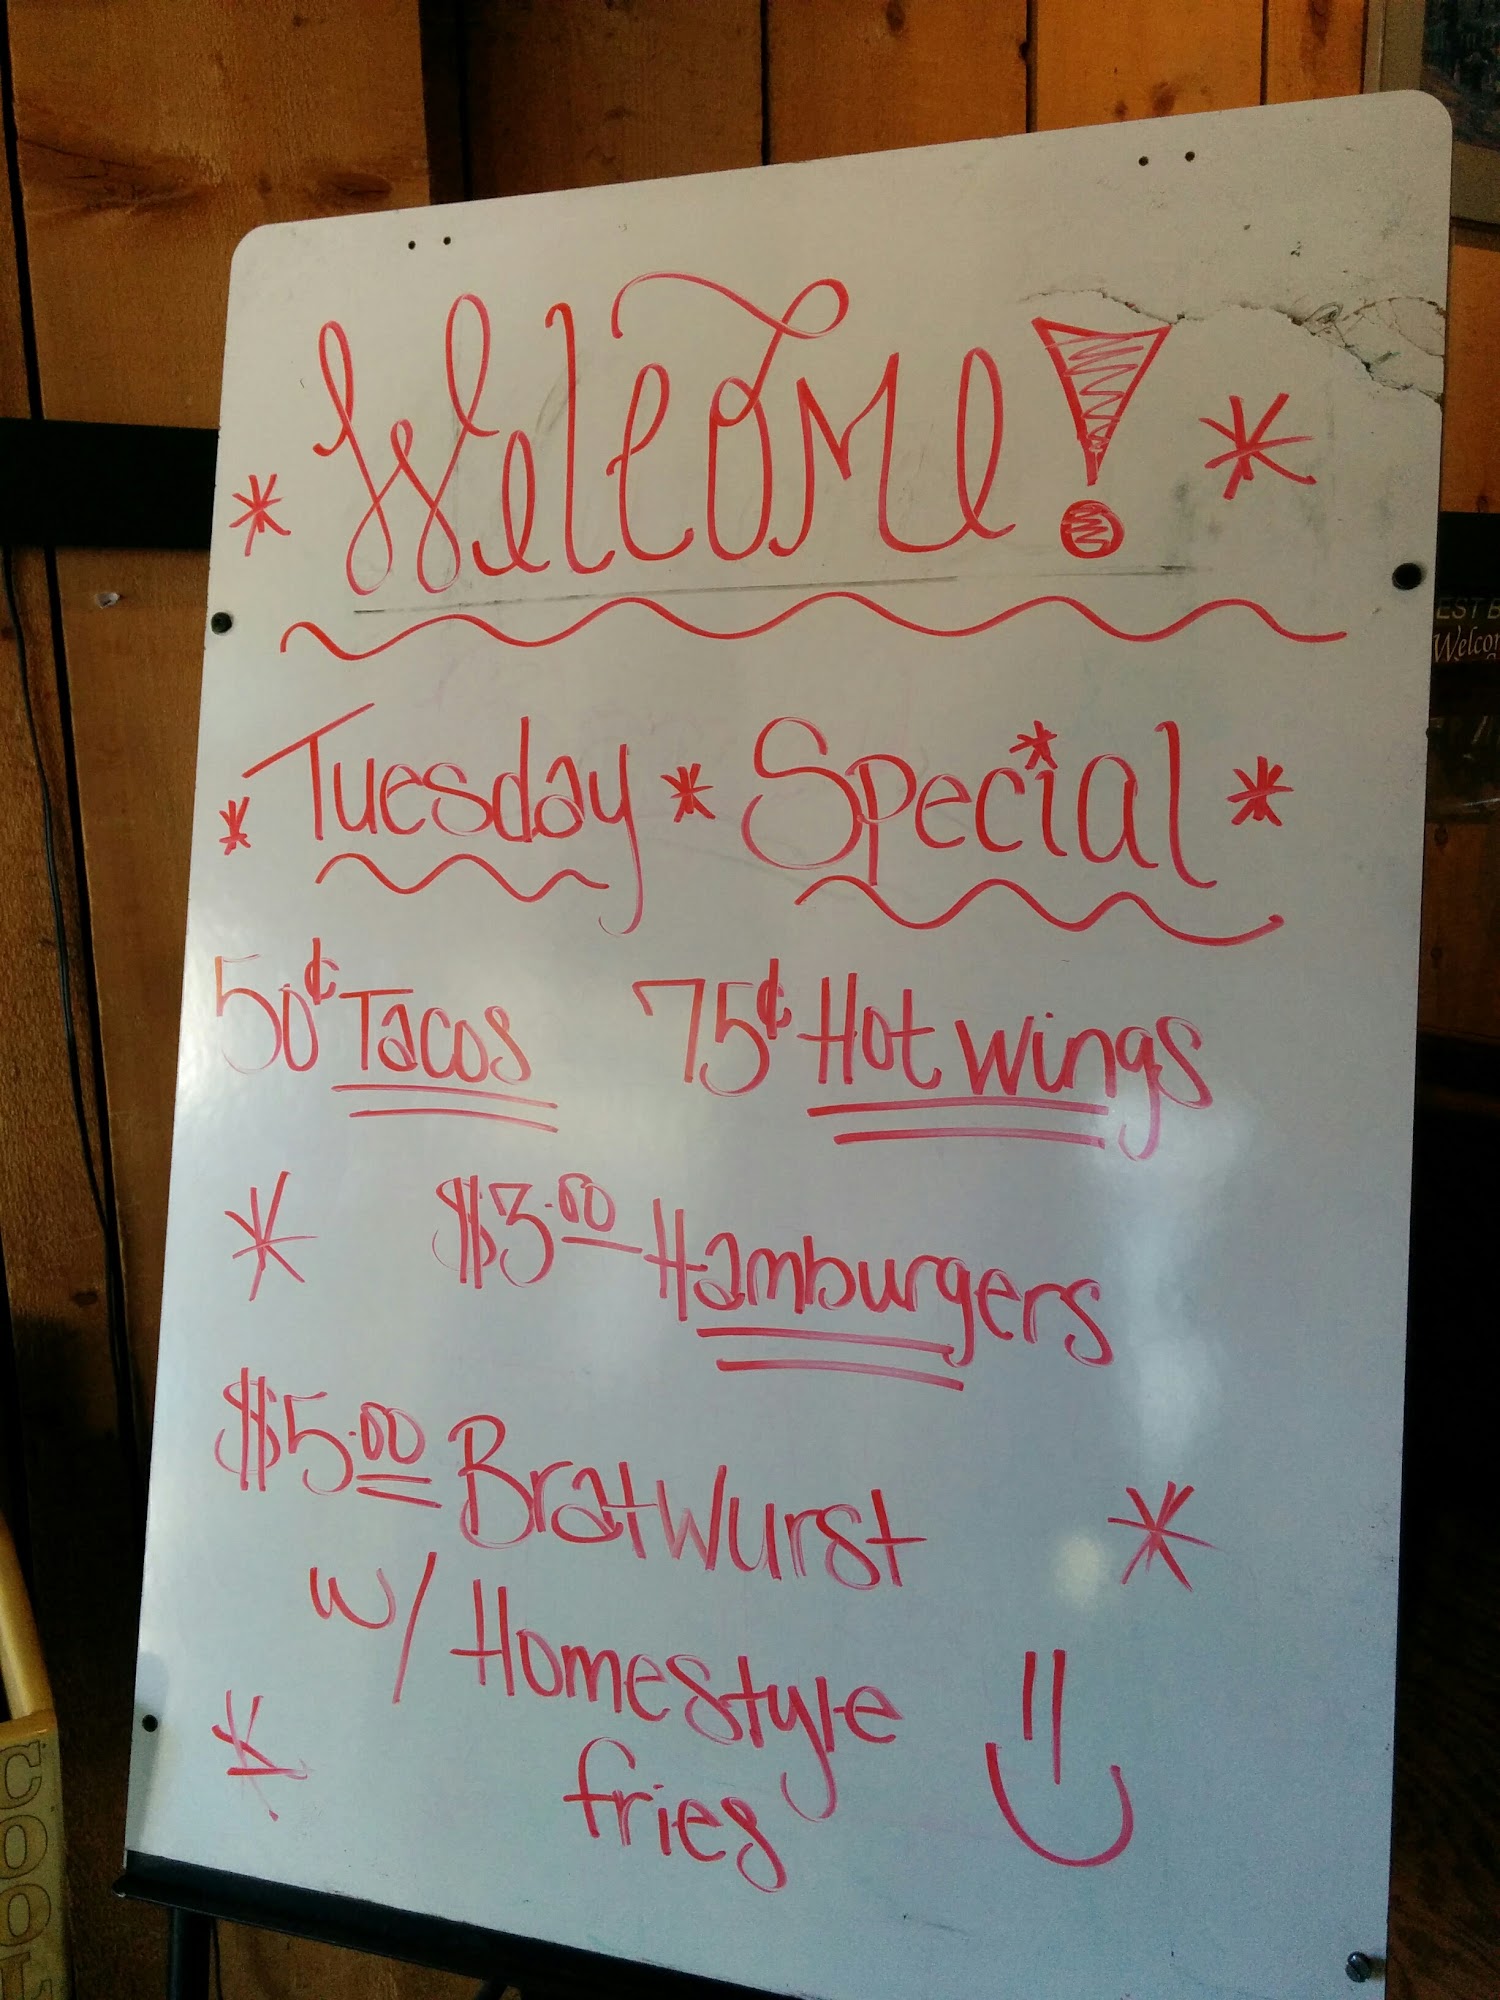 Welcome!
Tuesday * Special
50¢ Tacos 75¢ Hot wings
$3.00 Hamburgers
$5.00 Bratwurst
w/ Homestyle
fries
EST B
Welcom
COOL